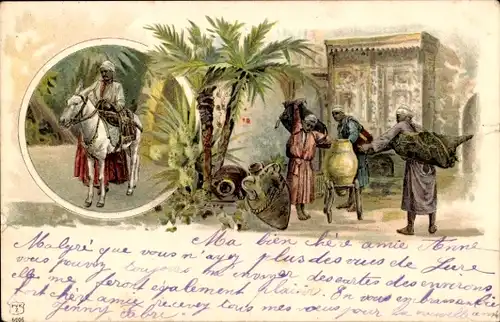 Ma bien chère amie Anne
Malgré que vous n'ayez plus des vues de Lure
vous pouvez toujours m'envoyer des cartes des environs
elle me feront également plaisir. En vous embrassant bien
fort chère amie recevez tous mes vœux pour la nouvelle année
Jenny Fabre.
6006